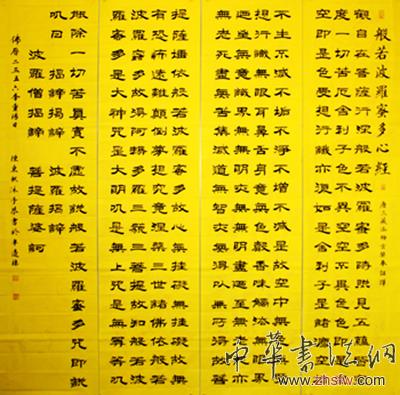 般若波羅蜜多心經
唐三藏法師玄奘奉詔譯
觀自在菩薩行深般若波羅蜜多時照見五蘊皆空
度一切苦厄舍利子色不異空空不異色色即是空
空即是色受想行識亦復如是舍利子是諸法空相
不生不滅不垢不淨不增不減是故空中無色無受
想行識無眼耳鼻舌身意無色聲香味觸法無眼界
乃至無意識界無無明亦無無明盡乃至無老死亦
無老死盡無苦集滅道無智亦無得以無所得故菩
提薩埵依般若波羅蜜多故心無掛礙無掛礙故無
有恐怖遠離顛倒夢想究竟涅槃三世諸佛依般若
波羅蜜多故得阿耨多羅三藐三菩提故知般若波
羅蜜多是大神咒是大明咒是無上咒是無等等咒
能除一切苦真實不虛故說般若波羅蜜多咒即說
咒曰 揭諦揭諦 波羅揭諦
波羅僧揭諦 菩提薩婆訶
佛曆二五五六年重陽日 沐手恭書於半邊樓
中華書法網
www.zhsfw.com